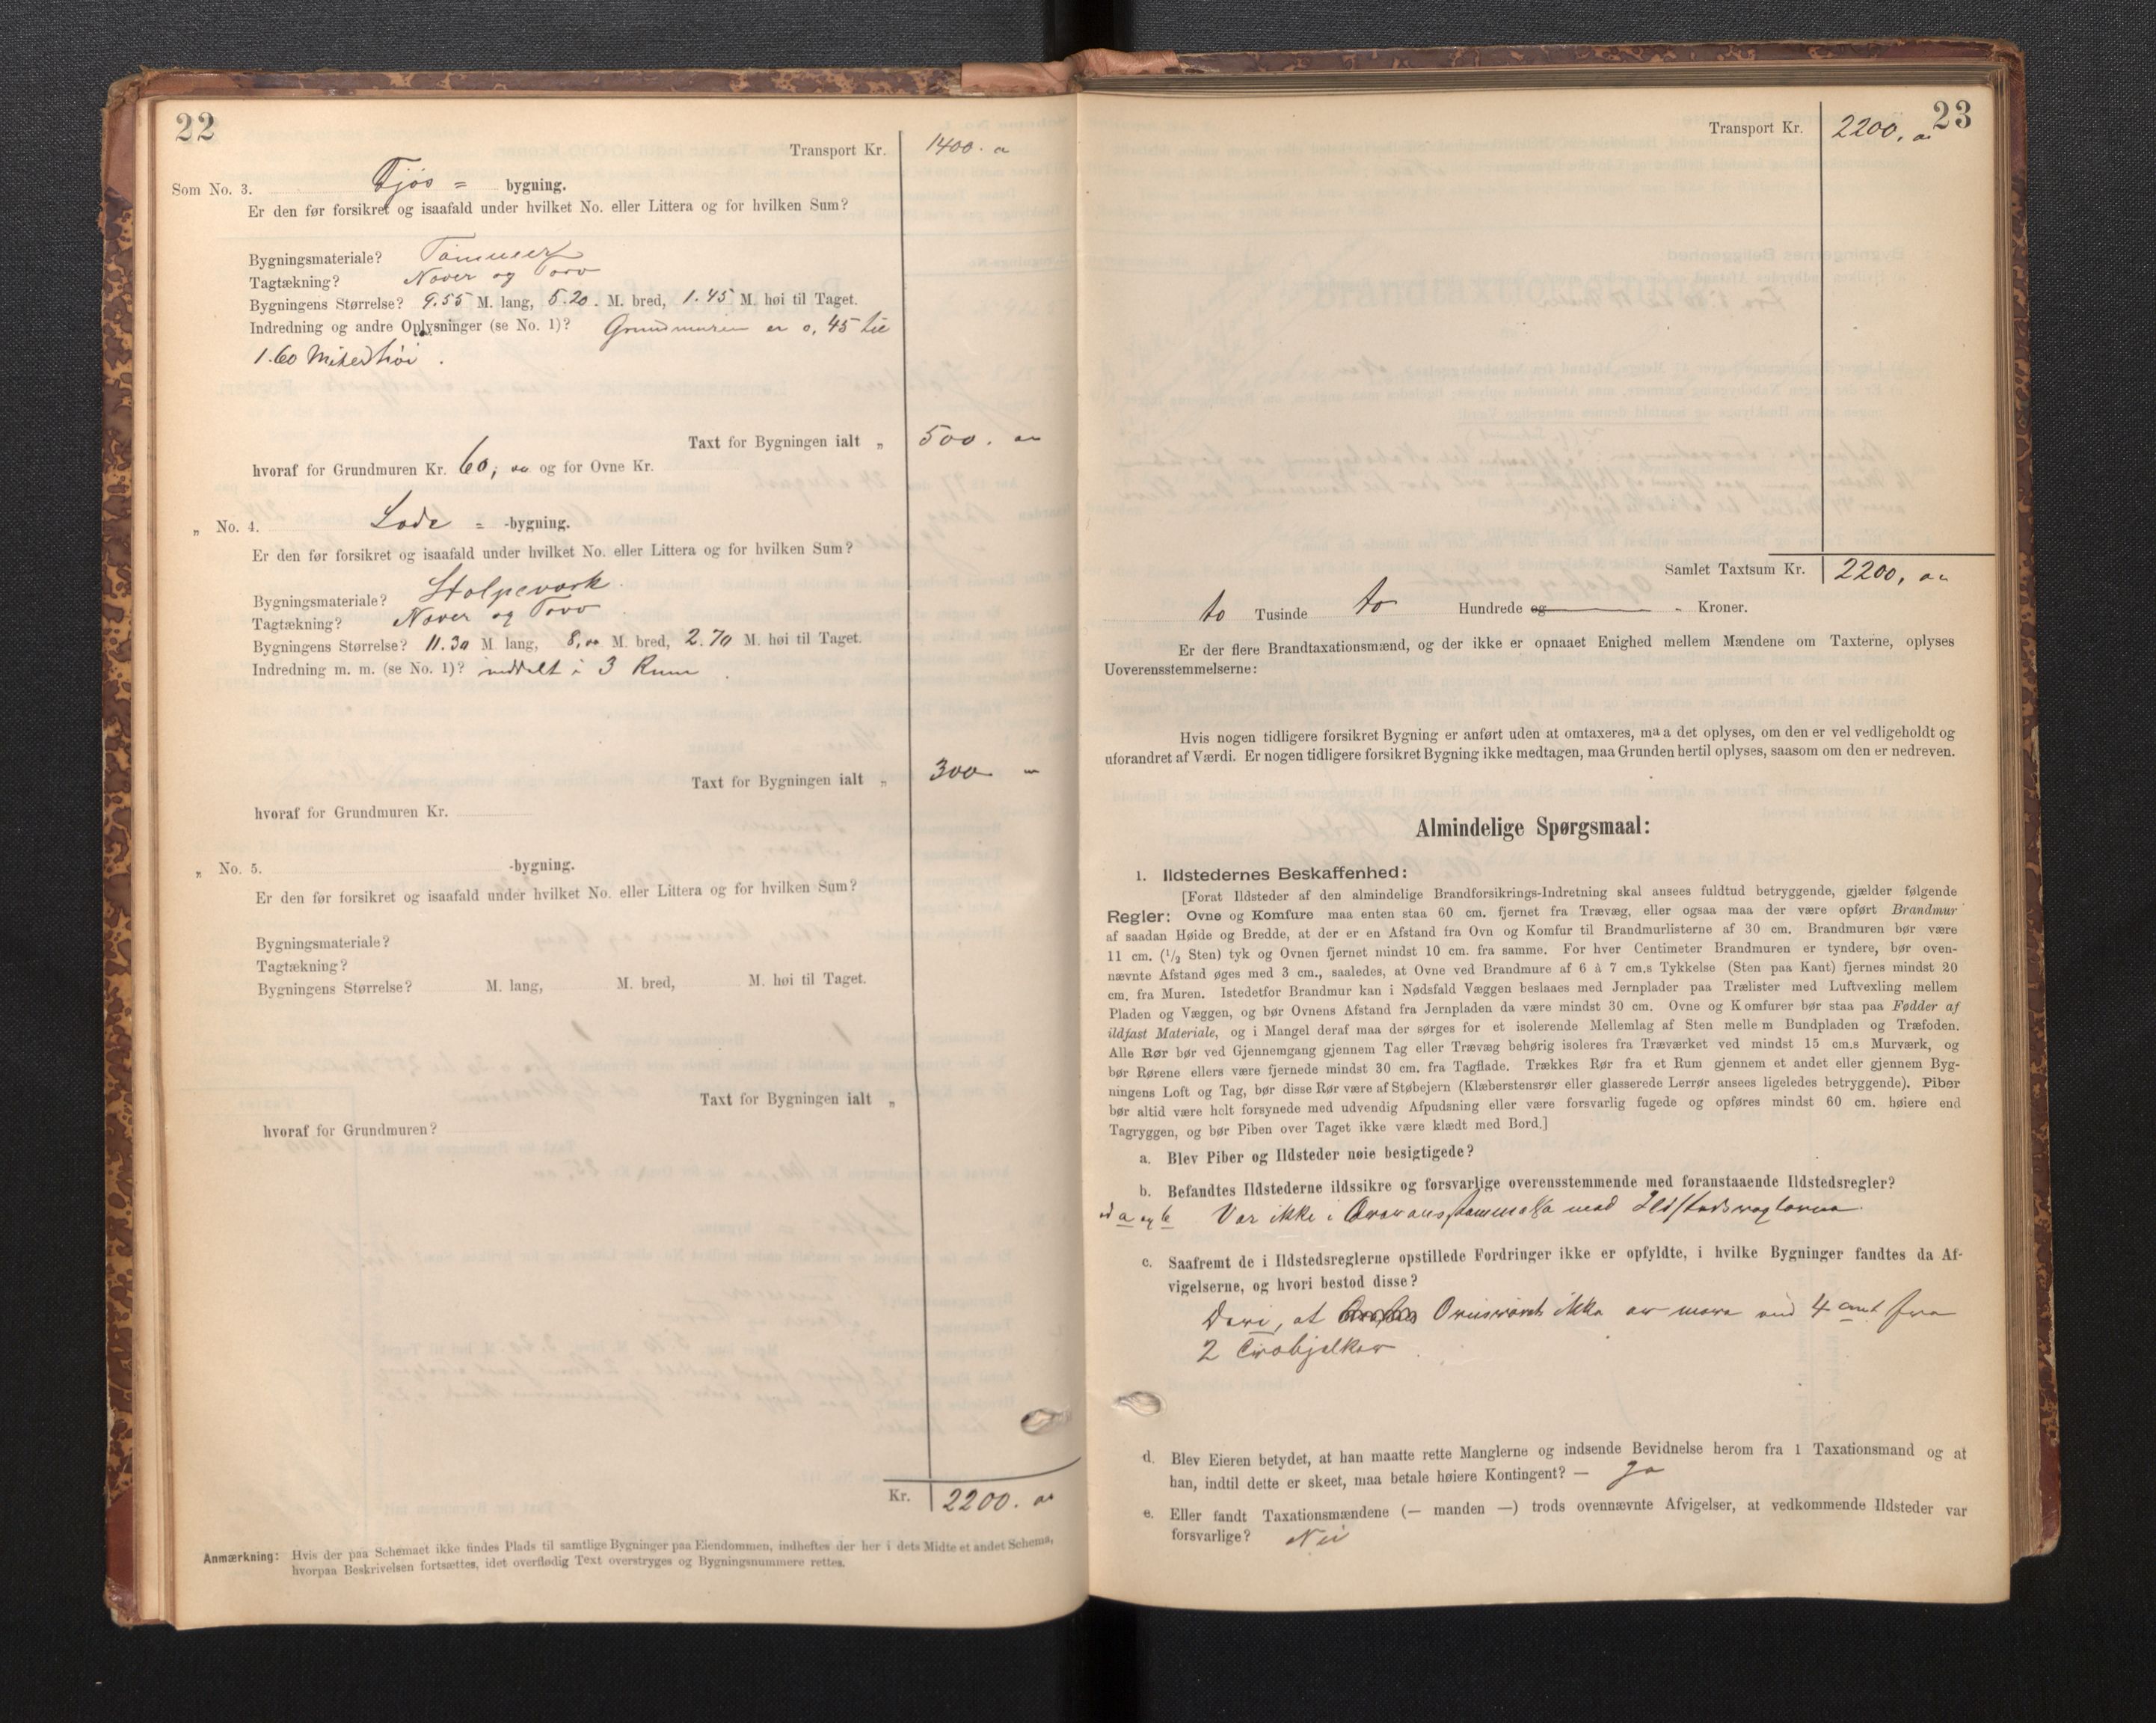 22
Transport Kr. 1400. "
Som No. 3. Fjøs = bygning.
Er den før forsikret og isaafald under hvilket No. eller Littera og for hvilken Sum?
Bygningsmateriale? Tømmer
Tagtækning? Næver og Torv
Bygningens Størrelse? 9.55 M. lang, 5.20. M. bred, 1.45 M. høi til Taget.
Indredning og andre Oplysninger (se No. 1)? Grundmuren er 0,45 til
1.60 Meter høi.
Taxt for Bygningen ialt „ 500. "
hvoraf for Grundmuren Kr. 60, " og for Ovne Kr.
„ No. 4. Lade = -bygning.
Er den før forsikret og isaafald under hvilket No. eller Littera og for hvilken Sum?
Bygningsmateriale? Stolpeverk.
Tagtækning? Næver og Torv
Bygningens Størrelse? 11.30 M. lang, 8," M. bred, 2.70 M. høi til Taget.
Indredning m. m. (se No. 1)? inddelt i 3 Rum.
Taxt for Bygningen ialt „ 300 "
hvoraf for Grundmuren Kr.
„ No. 5. -bygning.
Er den før forsikret og isaafald under hvilket No. eller Littera og for hvilken Sum?
Bygningsmateriale?
Tagtækning?
Bygningens Størrelse? M. lang, M. bred, M. høi til Taget.
Taxt for Bygningen ialt „
hvoraf for Grundmuren?
Kr. 2200. "
Anmærkning: Hvis der paa Schemaet ikke findes Plads til samtlige Bygninger paa Eiendommen, indheftes der her i dets Midte et andet Schema,
hvorpaa Beskrivelsen fortsættes, idet overflødig Text overstryges og Bygningsnummere rettes.
23
Transport Kr. 2200, "
Samlet Taxtsum Kr. 2200, "
to Tusinde to Hundrede og " Kroner.
Er der flere Brandtaxationsmænd, og der ikke er opnaaet Enighed mellem Mændene om Taxterne, oplyses
Uoverensstemmelserne:
Hvis nogen tidligere forsikret Bygning er anført uden at omtaxeres, maa det oplyses, om den er vel vedligeholdt og
uforandret af Værdi. Er nogen tidligere forsikret Bygning ikke medtagen, maa Grunden hertil oplyses, saasom om den er nedreven.
Almindelige Spørgsmaal:
1. Ildstedernes Beskaffenhed:
[Forat Ildsteder af den almindelige Brandforsikrings-Indretning skal ansees fuldtud betryggende, gjælder følgende
Regler: Ovne og Komfure maa enten staa 60 cm. fjernet fra Trævæg, eller ogsaa maa der være opført Brandmur
af saadan Høide og Bredde, at der er en Afstand fra Ovn og Komfur til Brandmurlisterne af 30 cm. Brandmuren bør være
11 cm. (1/2 Sten) tyk og Ovnen fjernet mindst 10 cm. fra samme. For hver Centimeter Brandmuren er tyndere, bør oven-
nævnte Afstand øges med 3 cm., saaledes, at Ovne ved Brandmure af 6 à 7 cm.s Tykkelse (Sten paa Kant) fjernes mindst 20
cm. fra Muren. Istedetfor Brandmur kan i Nødsfald Væggen beslaaes med Jernplader paa Trælister med Luftvexling mellem
Pladen og Væggen, og bør Ovnens Afstand fra Jernpladen da være mindst 30 cm. Ovne og Komfurer bør staa paa Fødder af
ildfast Materiale, og i Mangel deraf maa der sørges for et isolerende Mellemlag af Sten mellem Bundpladen og Træfoden.
Alle Rør bør ved Gjennemgang gjennem Tag eller Trævæg behørig isoleres fra Træværket ved mindst 15 cm.s Murværk, og
bør Rørene ellers være fjernede mindst 30 cm. fra Tagflade. Trækkes Rør fra et Rum gjennem et andet eller gjennem Byg-
ningens Loft og Tag, bør disse Rør være af Støbejern (Klæberstensrør eller glasserede Lerrør ansees ligeledes betryggende). Piber
bør altid være helt forsynede med udvendig Afpudsning eller være forsvarlig fugede og opføres mindst 60 cm. høiere end
Tagryggen, og bør Piben over Taget ikke være klædt med Bord.]
a. Blev Piber og Ildsteder nøie besigtigede?
b. Befandtes Ildstederne ildssikre og forsvarlige overensstemmende med foranstaaende Ildstedsregler?
ad a og b Var ikke i Overensstemmelse med Ildstedsreglerne.
c. Saafremt de i Ildstedsreglerne opstillede Fordringer ikke er opfyldte, i hvilke Bygninger fandtes da Af-
vigelserne, og hvori bestod disse?
Deri, at Ovnsrøret ikke er mere end 4 cmt fra
2 Træbjelker.
d. Blev Eieren betydet, at han maatte rette Manglerne og indsende Bevidnelse herom fra 1 Taxationsmand og at
han, indtil dette er skeet, maa betale høiere Kontingent? — Ja
e. Eller fandt Taxationsmændene (— manden —) trods ovennævnte Afvigelser, at vedkommende Ildsteder var
forsvarlige? Nei